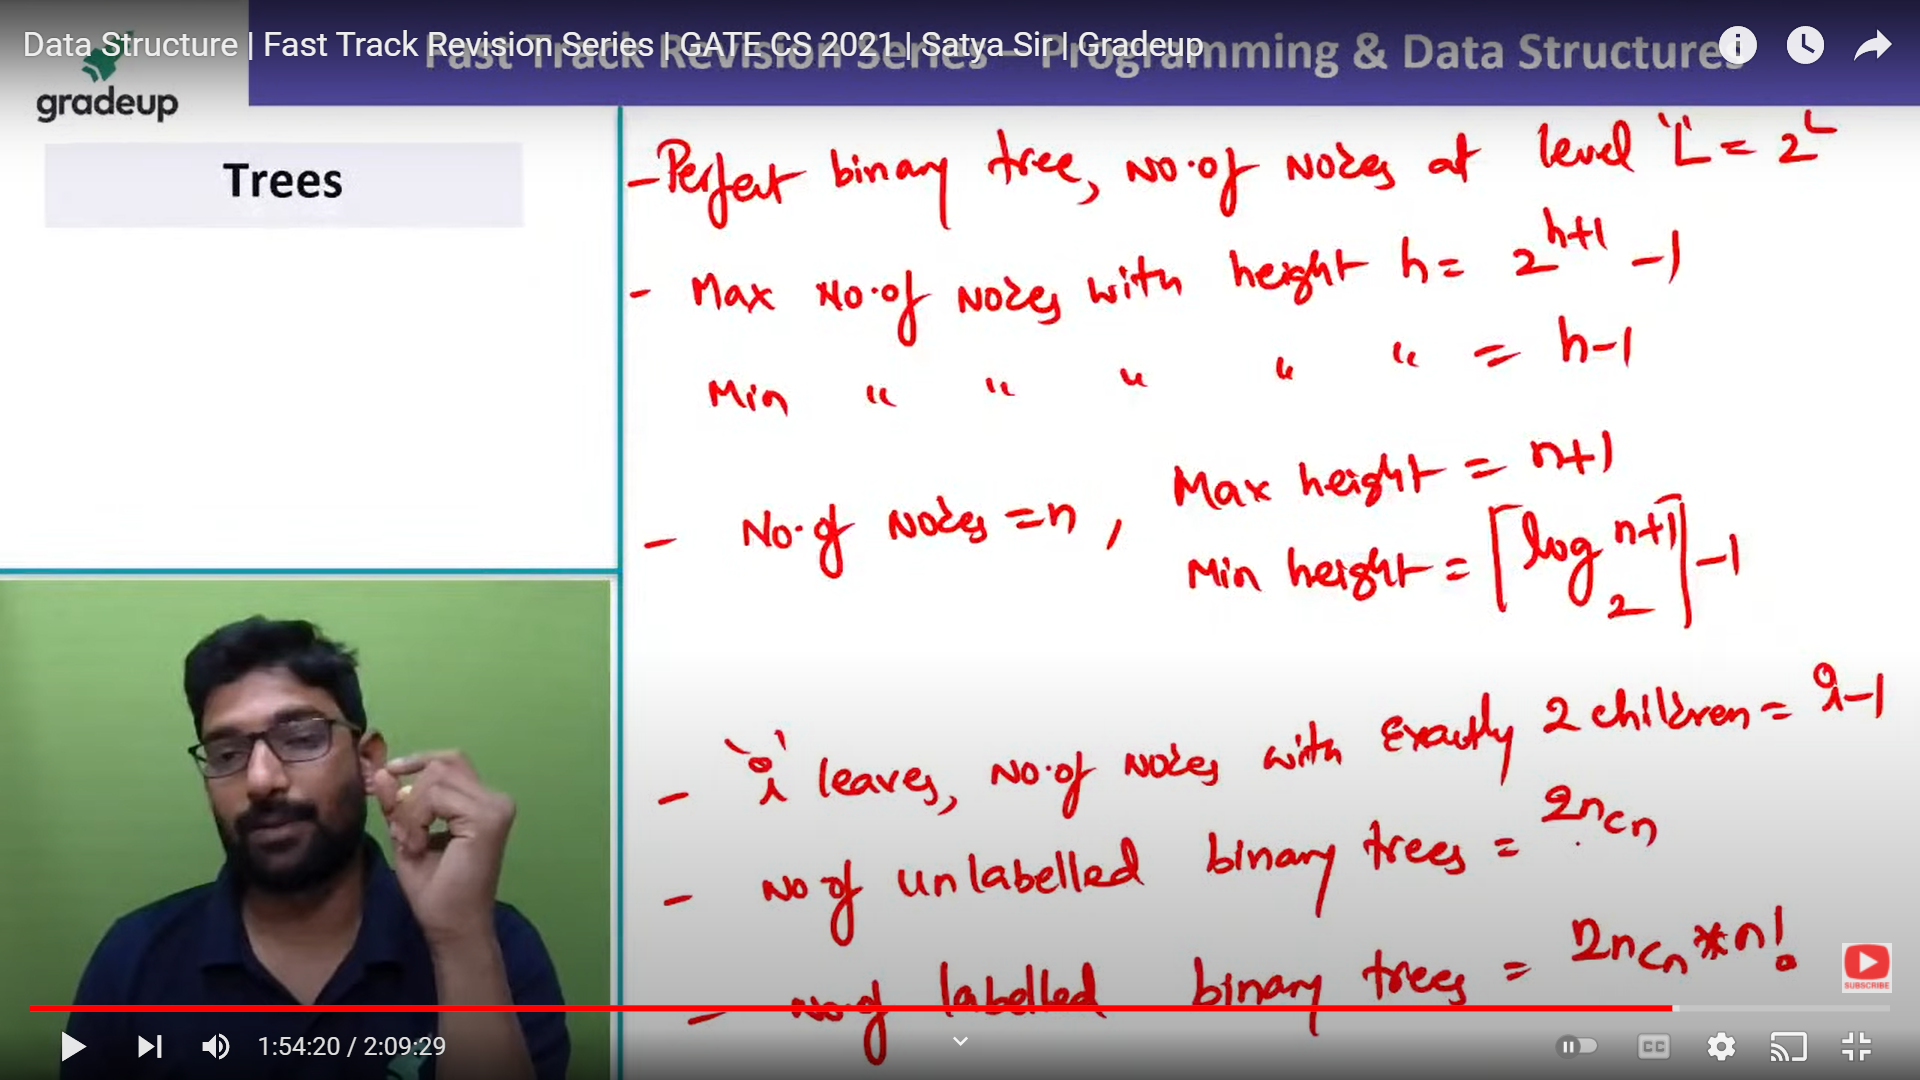 Data Structure | Fast Track Revision Series | GATE CS 2021 | Satya Sir | Gradeup
Fast Track Revision Series – Programming & Data Structures
gradeup
Trees
- Perfect binary tree, No.of Nodes at level "L" = 2^L
- Max No.of Nodes with height h = 2^h+1 - 1
Min " " " " " = h-1
- No.of Nodes = n, Max height = n+1
Min height = ⌈log₂ n+1⌉ - 1
- 'i' leaves, No.of Nodes with Exactly 2 children = i-1
- No of unlabelled binary trees = 2nCn
- No.of labelled binary trees = 2nCn * n!
SUBSCRIBE
1:54:20 / 2:09:29
CC